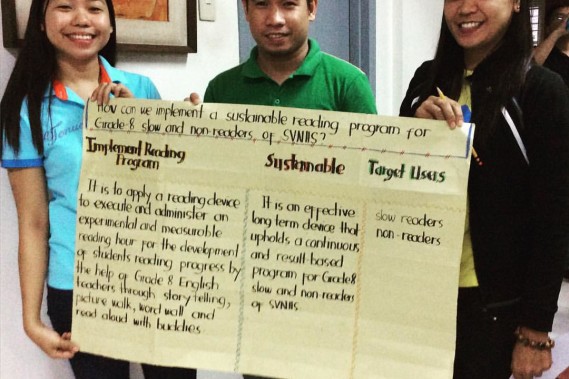 How can we implement a sustainable reading program for
Grade-8 slow and non-readers of SVNHS?
Implement Reading
Program
It is to apply a reading device
to execute and administer an
experimental and measurable
reading hour for the development
of students reading progress by
the help of Grade 8 English
teachers through story telling,
picture walk, word wall and
read aloud with buddies
Sustainable
It is an effective
long term device that
upholds a continuous
and result-based
program for Grade8
slow and non-readers
of SVNHS.
Target Users
slow readers
non-readers